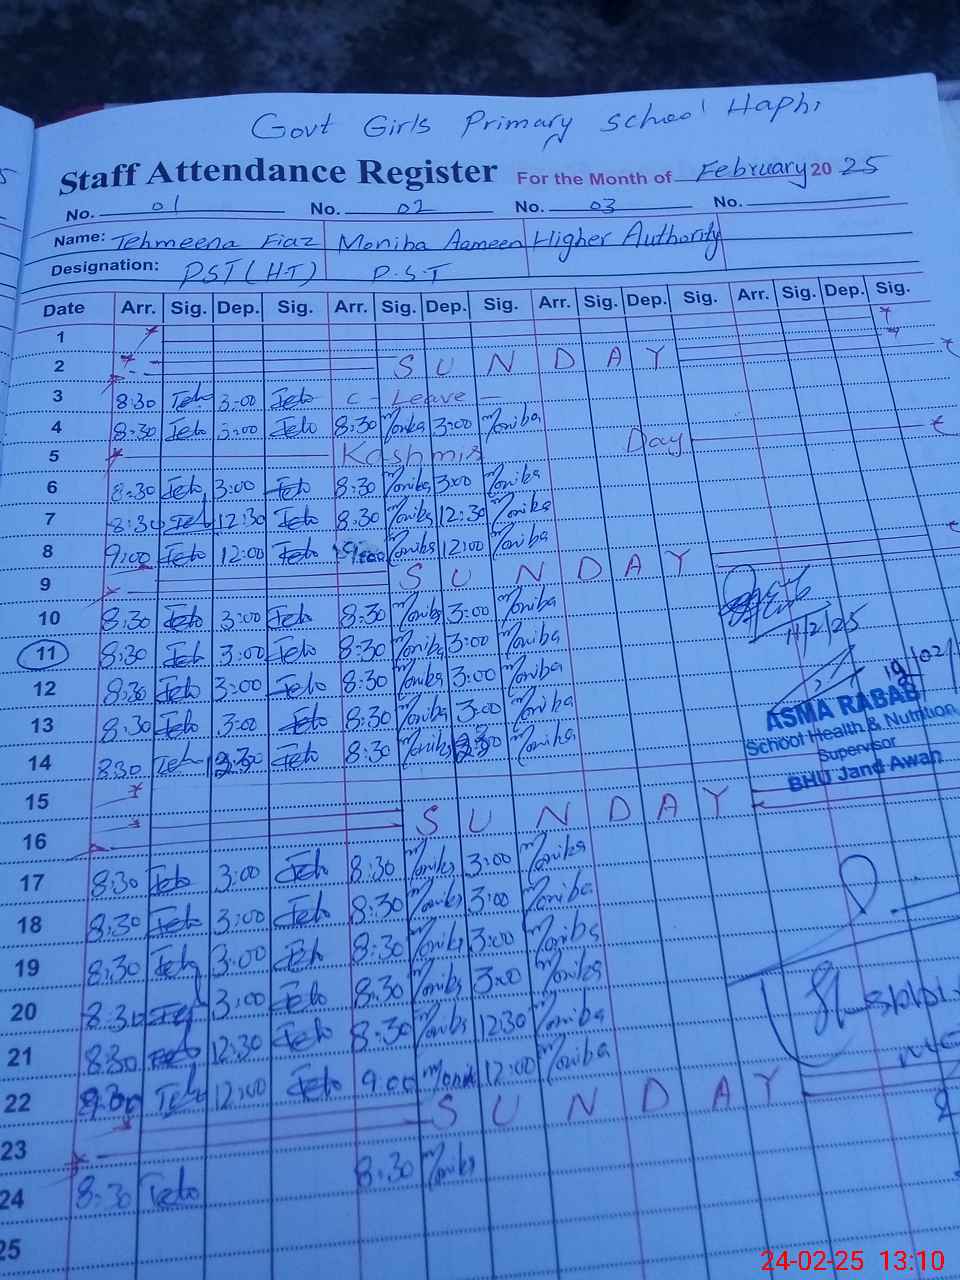 Govt Girls Primary School Haphi
Staff Attendance Register For the Month of February 20 25
No. 01 No. 02 No. 03 No.
Name: Tehmeena Fiaz Moniba Aameen Higher Authority
Designation: PST (HT) P.S.T
Date Arr. Sig. Dep. Sig. Arr. Sig. Dep. Sig. Arr. Sig. Dep. Sig. Arr. Sig. Dep. Sig.
1
2 SUNDAY
3 8:30 3:00 C - Leave -
4 8:30 3:00 8:30 Moniba 3:00 Moniba
5 Kashmir Day
6 8:30 3:00 8:30 Moniba 3:00 Moniba
7 8:30 12:30 8:30 Moniba 12:30 Moniba
8 9:00 12:00 Moniba 12:00 Moniba
9 SUNDAY
10 8:30 3:00 8:30 Moniba 3:00 Moniba
11 8:30 3:00 8:30 Moniba 3:00 Moniba
11/2/25
12 8:30 3:00 8:30 Moniba 3:00 Moniba
13 8:30 3:00 8:30 Moniba 3:00 Moniba
ASMA RABAB
School Health & Nutrition
Supervisor
BHU Jand Awan
14 8:30 8:30 Moniba Moniba
15
16 SUNDAY
17 8:30 3:00 8:30 Moniba 3:00 Moniba
18 8:30 3:00 8:30 Moniba 3:00 Moniba
19 8:30 3:00 8:30 Moniba 3:00 Moniba
20 8:30 3:00 8:30 Moniba 3:00 Moniba
21 8:30 12:30 8:30 Moniba 12:30 Moniba
22 12:00 9:00 12:00 Moniba
23 SUNDAY
24 8:30 8:30 Moniba
25
24-02-25 13:10